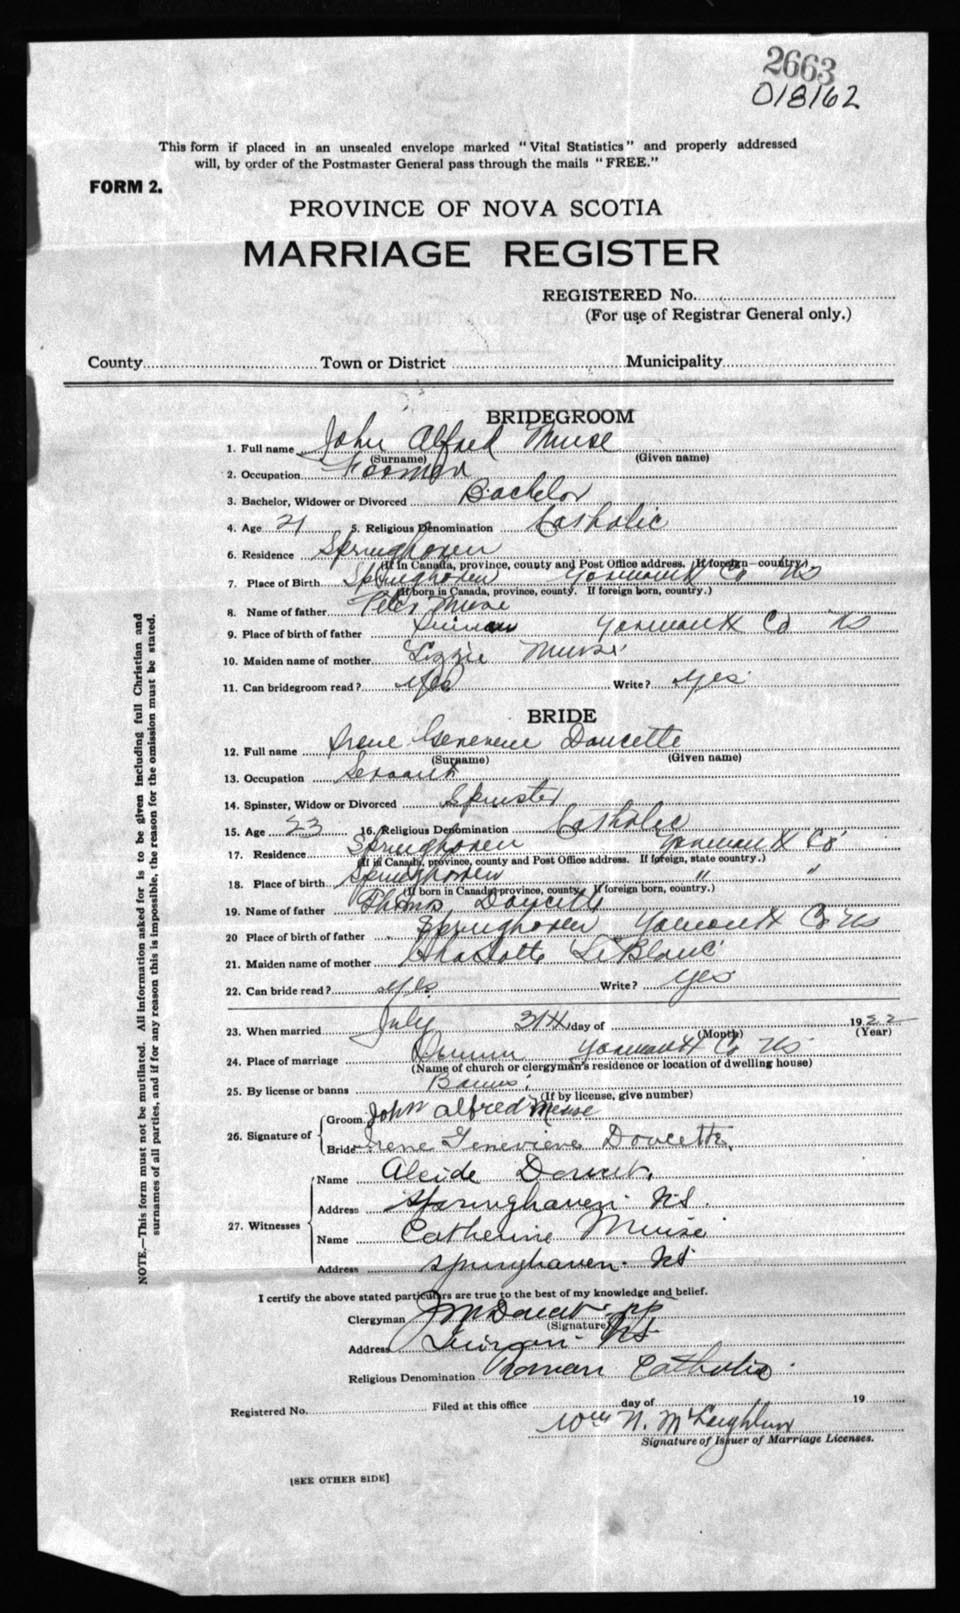 2663
018162
This form if placed in an unsealed envelope marked "Vital Statistics" and properly addressed
will, by order of the Postmaster General pass through the mails "FREE."
FORM 2.
PROVINCE OF NOVA SCOTIA
MARRIAGE REGISTER
REGISTERED No.
(For use of Registrar General only.)
County Town or District Municipality
BRIDEGROOM
1. Full name John Alfred Muise
(Surname) (Given name)
2. Occupation
3. Bachelor, Widower or Divorced Bachelor
4. Age 21 5. Religious Denomination Catholic
6. Residence Springhaven
(If in Canada, province, county and Post Office address. If foreign—country.)
7. Place of Birth Springhaven Yarmouth Co NS
(If born in Canada, province, county. If foreign born, country.)
8. Name of father Peter Muise
9. Place of birth of father Quinan Yarmouth Co NS
10. Maiden name of mother Lizzie Muise
11. Can bridegroom read? Yes Write? Yes
BRIDE
12. Full name Irene Genevieve Doucette
(Surname) (Given name)
13. Occupation Servant
14. Spinster, Widow or Divorced Spinster
15. Age 23 16. Religious Denomination Catholic
17. Residence Springhaven Yarmouth Co
(If in Canada, province, county and Post Office address. If foreign, state country.)
18. Place of birth Springhaven " "
(If born in Canada province, county. If foreign born, country.)
19. Name of father Thomas Doucette
20 Place of birth of father Springhaven Yarmouth Co NS
21. Maiden name of mother LeBlanc
22. Can bride read? Yes. Write? Yes
23. When married July 31st day of 1922
(Month) (Year)
24. Place of marriage Quinan Yarmouth Co NS
(Name of church or clergyman's residence or location of dwelling house)
25. By license or banns Banns
(If by license, give number)
26. Signature of
Groom John Alfred Meuse
Bride Irene Genevieve Doucette
27. Witnesses
Name Alcide Doucet.
Address Springhaven N.S.
Name Catherine Muise
Address Springhaven. NS
I certify the above stated particulars are true to the best of my knowledge and belief.
Clergyman Doucet pp
(Signature)
Address Quinan NS.
Religious Denomination Roman Catholic.
Registered No. Filed at this office day of 19
Wm N. McLaughlin
Signature of Issuer of Marriage Licenses.
[SEE OTHER SIDE]
NOTE.—This form must not be mutilated. All information asked for is to be given including full Christian and
surnames of all parties, and if for any reason this is impossible, the reason for the omission must be stated.